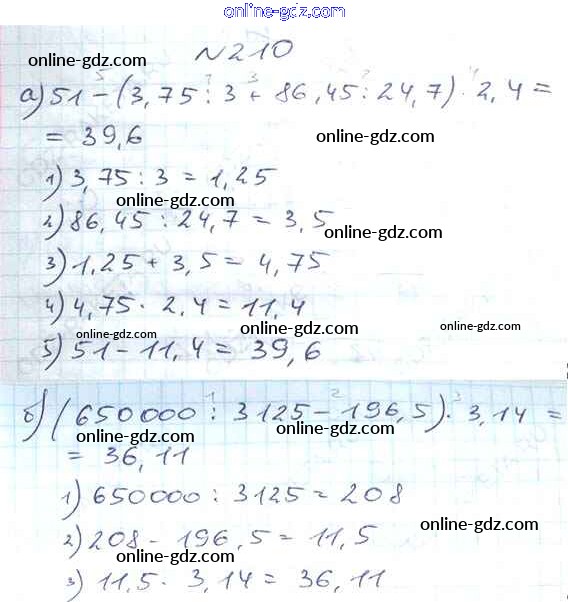 online-gdz.com
№210
online-gdz.com
а) 51 - (3,75 : 3 + 86,45 : 24,7) · 2,4 =
5 1 3 2 4
= 39,6
online-gdz.com
1) 3,75 : 3 = 1,25
online-gdz.com
2) 86,45 : 24,7 = 3,5
online-gdz.com
online-gdz.com
3) 1,25 + 3,5 = 4,75
4) 4,75 · 2,4 = 11,4
online-gdz.com online-gdz.com online-gdz.com
5) 51 - 11,4 = 39,6
б) (650000 : 3125 - 196,5) · 3,14 =
1 2 3
online-gdz.com online-gdz.com
= 36,11
online-gdz.com
1) 650000 : 3125 = 208
2) 208 - 196,5 = 11,5
online-gdz.com
online-gdz.com
3) 11,5 · 3,14 = 36,11
online-gdz.com